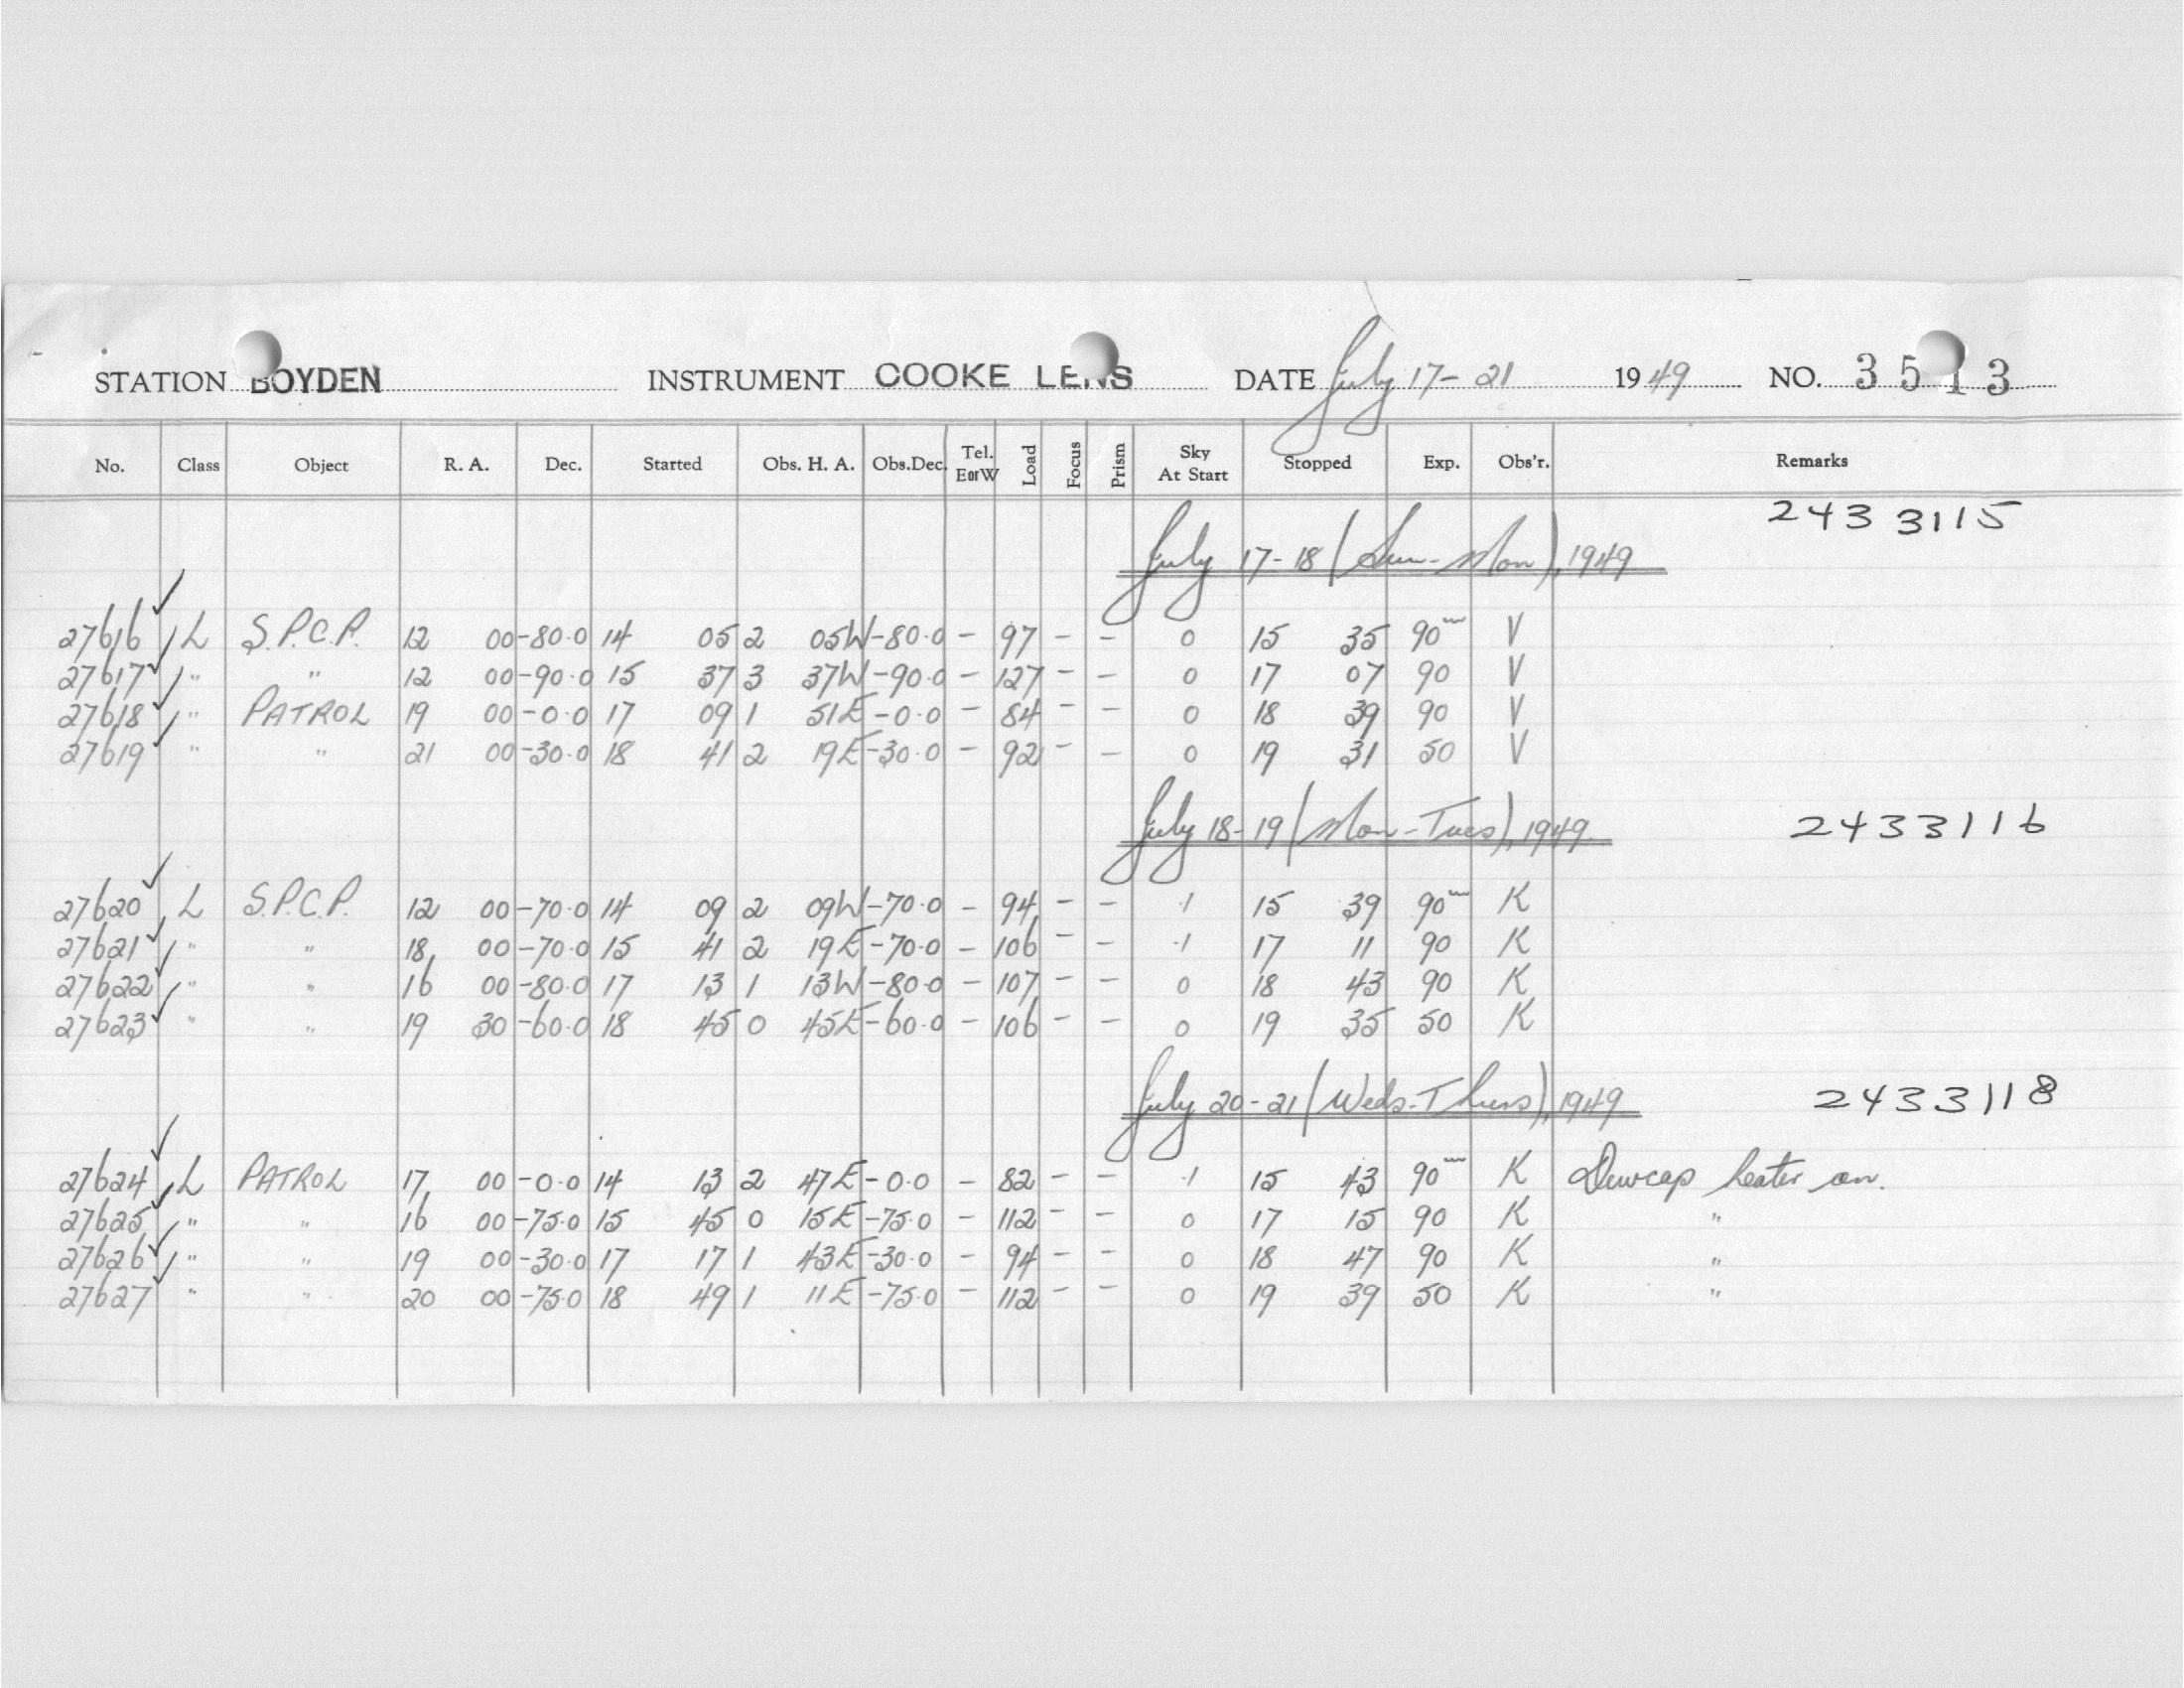 STATION BOYDEN INSTRUMENT COOKE LENS DATE July 17-21 1949 NO. 3513
No. Class Object R. A. Dec. Started Obs. H. A. Obs.Dec. Tel. EorW Load Focus Prism Sky At Start Stopped Exp. Obs'r. Remarks
2433115
July 17-18 (Sun-Mon), 1949
27616 L S.P.C.P. 12 00 -80.0 14 05 2 05W -80.0 - 97 - - 0 15 35 90m V
27617 " " 12 00 -90.0 15 37 3 37W -90.0 - 127 - - 0 17 07 90 V
27618 " PATROL 19 00 -0.0 17 09 1 51E -0.0 - 84 - - 0 18 39 90 V
27619 " " 21 00 -30.0 18 41 2 19E -30.0 - 92 - - 0 19 31 50 V
July 18-19 (Mon-Tues), 1949. 2433116
27620 L S.P.C.P. 12 00 -70.0 14 09 2 09W -70.0 - 94 - - .1 15 39 90m K
27621 " " 18 00 -70.0 15 41 2 19E -70.0 - 106 - - .1 17 11 90 K
27622 " " 16 00 -80.0 17 13 1 13W -80.0 - 107 - - 0 18 43 90 K
27623 " " 19 30 -60.0 18 45 0 45E -60.0 - 106 - - 0 19 35 50 K
July 20-21 (Weds-Thurs), 1949 2433118
27624 L PATROL 17 00 -0.0 14 13 2 47E -0.0 - 82 - - .1 15 43 90m K Dewcap heater on.
27625 " " 16 00 -75.0 15 45 0 15E -75.0 - 112 - - 0 17 15 90 K "
27626 " " 19 00 -30.0 17 17 1 43E -30.0 - 94 - - 0 18 47 90 K "
27627 " " 20 00 -75.0 18 49 1 11E -75.0 - 112 - - 0 19 39 50 K "